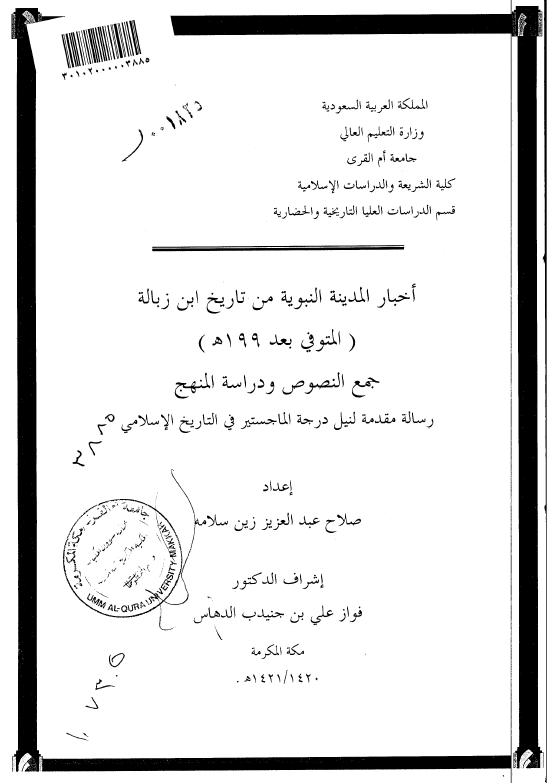 ٣٠١٠٢٠٠٠٠٠٣٨٨٥
المملكة العربية السعودية
وزارة التعليم العالي
جامعة أم القرى
كلية الشريعة والدراسات الإسلامية
قسم الدراسات العليا التاريخية والحضارية
أخبار المدينة النبوية من تاريخ ابن زبالة
( المتوفي بعد ١٩٩هـ )
جمع النصوص ودراسة المنهج
رسالة مقدمة لنيل درجة الماجستير في التاريخ الإسلامي
٣٨٨٥
إعداد
صلاح عبد العزيز زين سلامه
جامعة أم القرى مكة المكرمة
UMM AL-QURA UNIVERSITY-MAKKAH
إشراف الدكتور
فواز علي بن جنيدب الدهاس
مكة المكرمة
١٤٢١/١٤٢٠هـ .